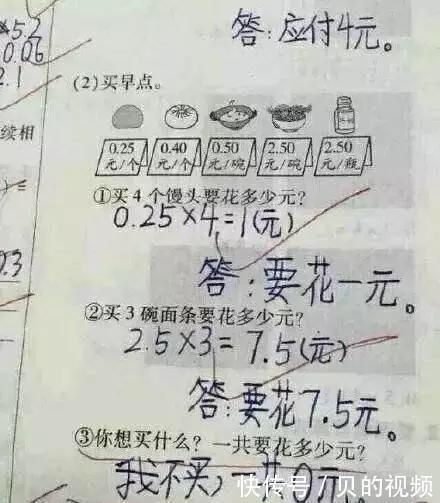 ×5.2
0.06
2.1
答:应付4元。
(2)买早点。
续相
0.25 元/个
0.40 元/个
0.50 元/碗
2.50 元/碗
2.50 元/瓶
①买4个馒头要花多少元?
0.25×4=1(元)
0.3
答:要花一元。
②买3碗面条要花多少元?
2.5×3=7.5(元)
答:要花7.5元。
③你想买什么?一共要花多少元?
我不买,一共0元。
快传号/贝的视频